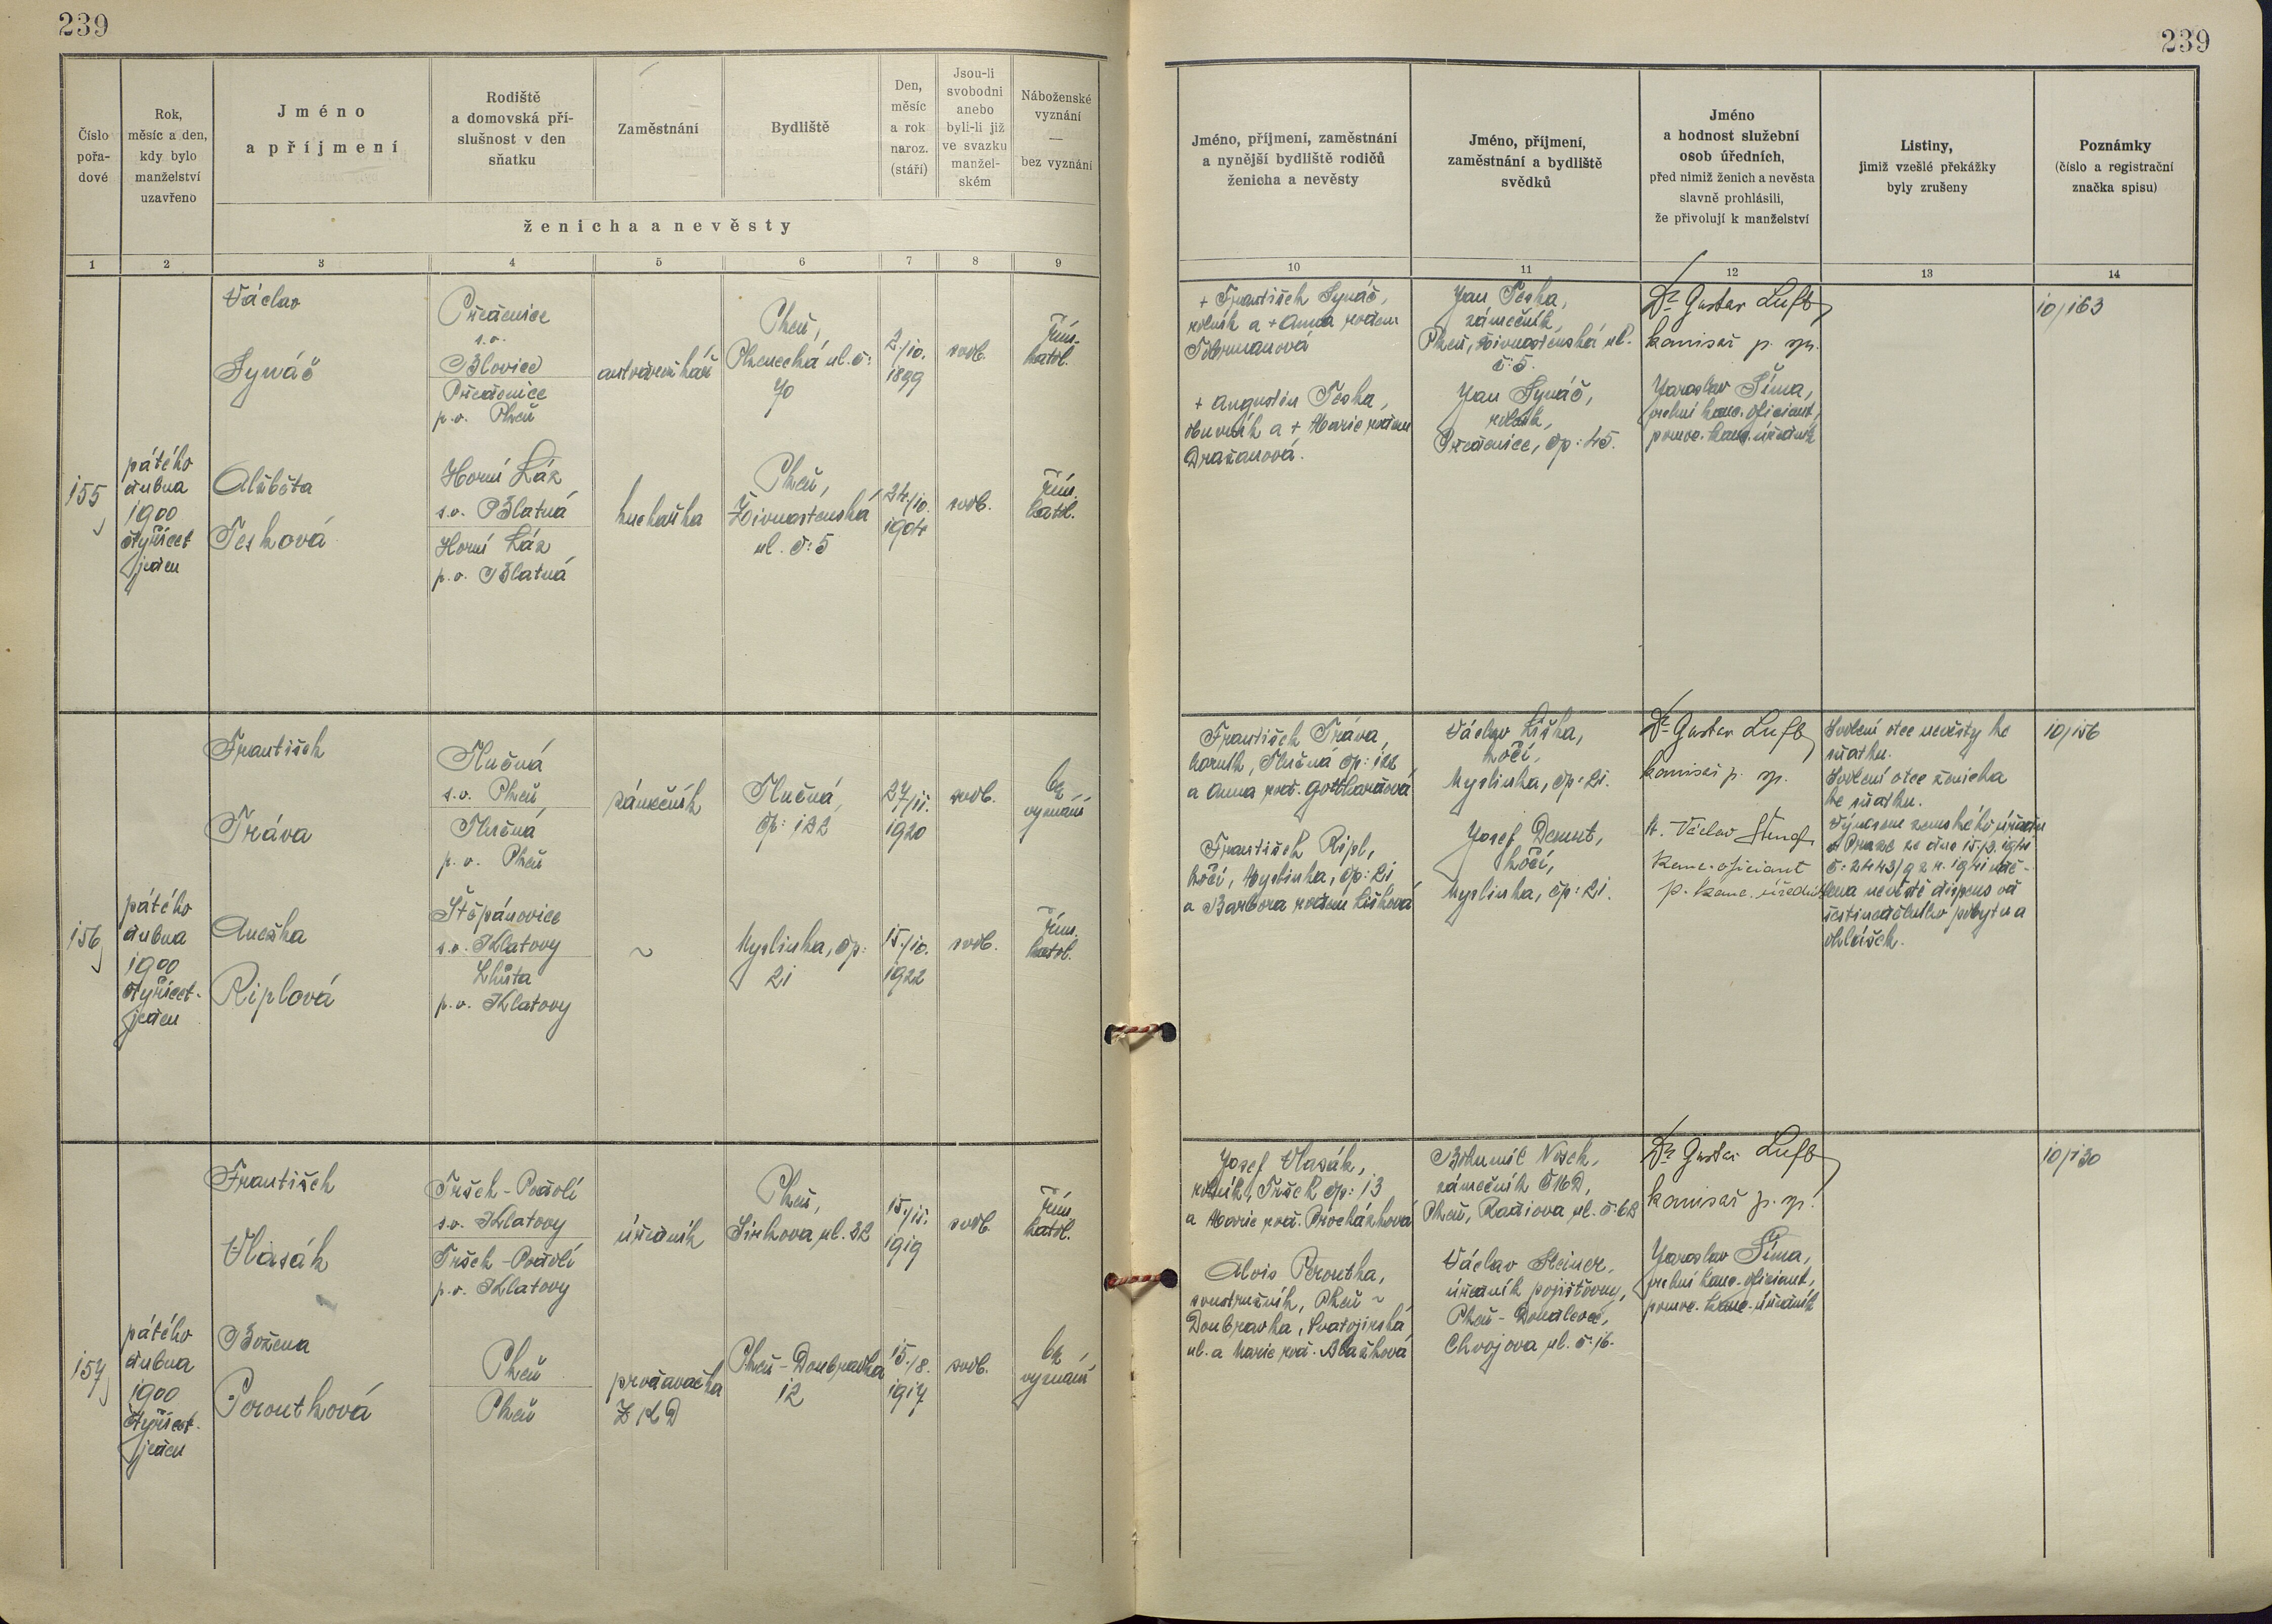 239
239
Číslo
pořa-
dové
Rok,
měsíc a den,
kdy bylo
manželství
uzavřeno
Jméno
a příjmení
Rodiště
a domovská pří-
slušnost v den
sňatku
Zaměstnání
Bydliště
Den,
měsíc
a rok
naroz.
(stáří)
Jsou-li
svobodni
anebo
byli-li již
ve svazku
manžel-
ském
Náboženské
vyznání
—
bez vyznání
ženicha a nevěsty
1 2 3 4 5 6 7 8 9
Jméno, příjmení, zaměstnání
a nynější bydliště rodičů
ženicha a nevěsty
Jméno, příjmení,
zaměstnání a bydliště
svědků
Jméno
a hodnost služební
osob úředních,
před nimiž ženich a nevěsta
slavně prohlásili,
že přivolují k manželství
Listiny,
jimiž vzešlé překážky
byly zrušeny
Poznámky
(číslo a registrační
značka spisu)
10 11 12 13 14
155
pátého
dubna
1900
čtyřicet
jeden
Václav
Synáč
Předenice
s.o.
Blovice
Předenice
p.o. Plzeň
Plzeň,
Plzenecká ul. č:
70
2./10.
1899
svob.
řím.
katol.
Alžběta
Tesková
Horní Láz
s.o. Blatná
Horní Láz
p.o. Blatná
kuchařka
Plzeň,
Živnostenská
ul. č: 5
24./10.
1904
svob.
řím.
katol.
+ František Synáč,
rolník a + Anna rodem
+ Augustin Teska,
obuvník a + Marie rodem
Dražanová.
Jan Teska,
zámečník,
Plzeň, Živnostenská ul.
č: 5.
Jan Synáč,
rolník,
Předenice, čp: 45.
Dr Gustav Luft
komisař p. sp.
Jaroslav Šíma,
vrchní kanc. oficiant,
pomoc. kanc. úředník
10/163
156
pátého
dubna
1900
čtyřicet-
jeden
František
Tráva
Tlučná
s.o. Plzeň
Tlučná
p.o. Plzeň
zámečník
Tlučná,
čp: 122
27/11.
1920
svob.
bez
vyznání
Anežka
Riplová
Štěpánovice
s.o. Klatovy
Lhůta
p.o. Klatovy
~
Myslinka, čp:
21
15./10.
1922
svob.
řím.
katol.
František Tráva,
horník, Tlučná čp: 122
a Anna rod. Gotthardová
František Ripl,
kočí, Myslinka, čp: 21
a Barbora rodem Lišková
Václav Liška,
kočí,
Myslinka, čp: 21.
Josef Demut,
kočí,
Myslinka, čp: 21.
Dr Gustav Luft
komisař p. sp.
kanc. oficiant
p. kanc. úředník
Svolení otce nevěsty ke
sňatku.
Svolení otce ženicha
ke sňatku.
Výnosem zemského úřadu
v Praze ze dne 15./2. 1941
lena nevěstě dispens od
šestinedělního pobytu a
ohlášek.
10/156
157
pátého
dubna
1900
čtyřicet-
jeden
František
Vlasák
Tršek - Podolí
s.o. Klatovy
Tršek - Podolí
p.o. Klatovy
úředník
Plzeň,
Sirkova ul. 32
15./11.
1919
svob.
řím.
katol.
Božena
Peroutková
Plzeň
Plzeň
prodavačka
ZKD
Plzeň - Doubravka
12
15./8.
1917
svob.
bez
vyznání
Josef Vlasák,
rolník, Tršek čp: 13
a Marie rod. Procházková
Alois Peroutka,
soustružník, Plzeň ~
Doubravka, Svatojirská
ul. a Marie rod. Blažková
Bohumil Nosek,
zámečník ČMD,
Plzeň, Radiova ul. č: 62
Václav Steiner,
úředník pojišťovny,
Plzeň - Doudlevce,
Chvojova ul. č: 16.
Dr Gustav Luft
komisař p. sp.
Jaroslav Šíma,
vrchní kanc. oficiant,
pomoc. kanc. úředník
10/130